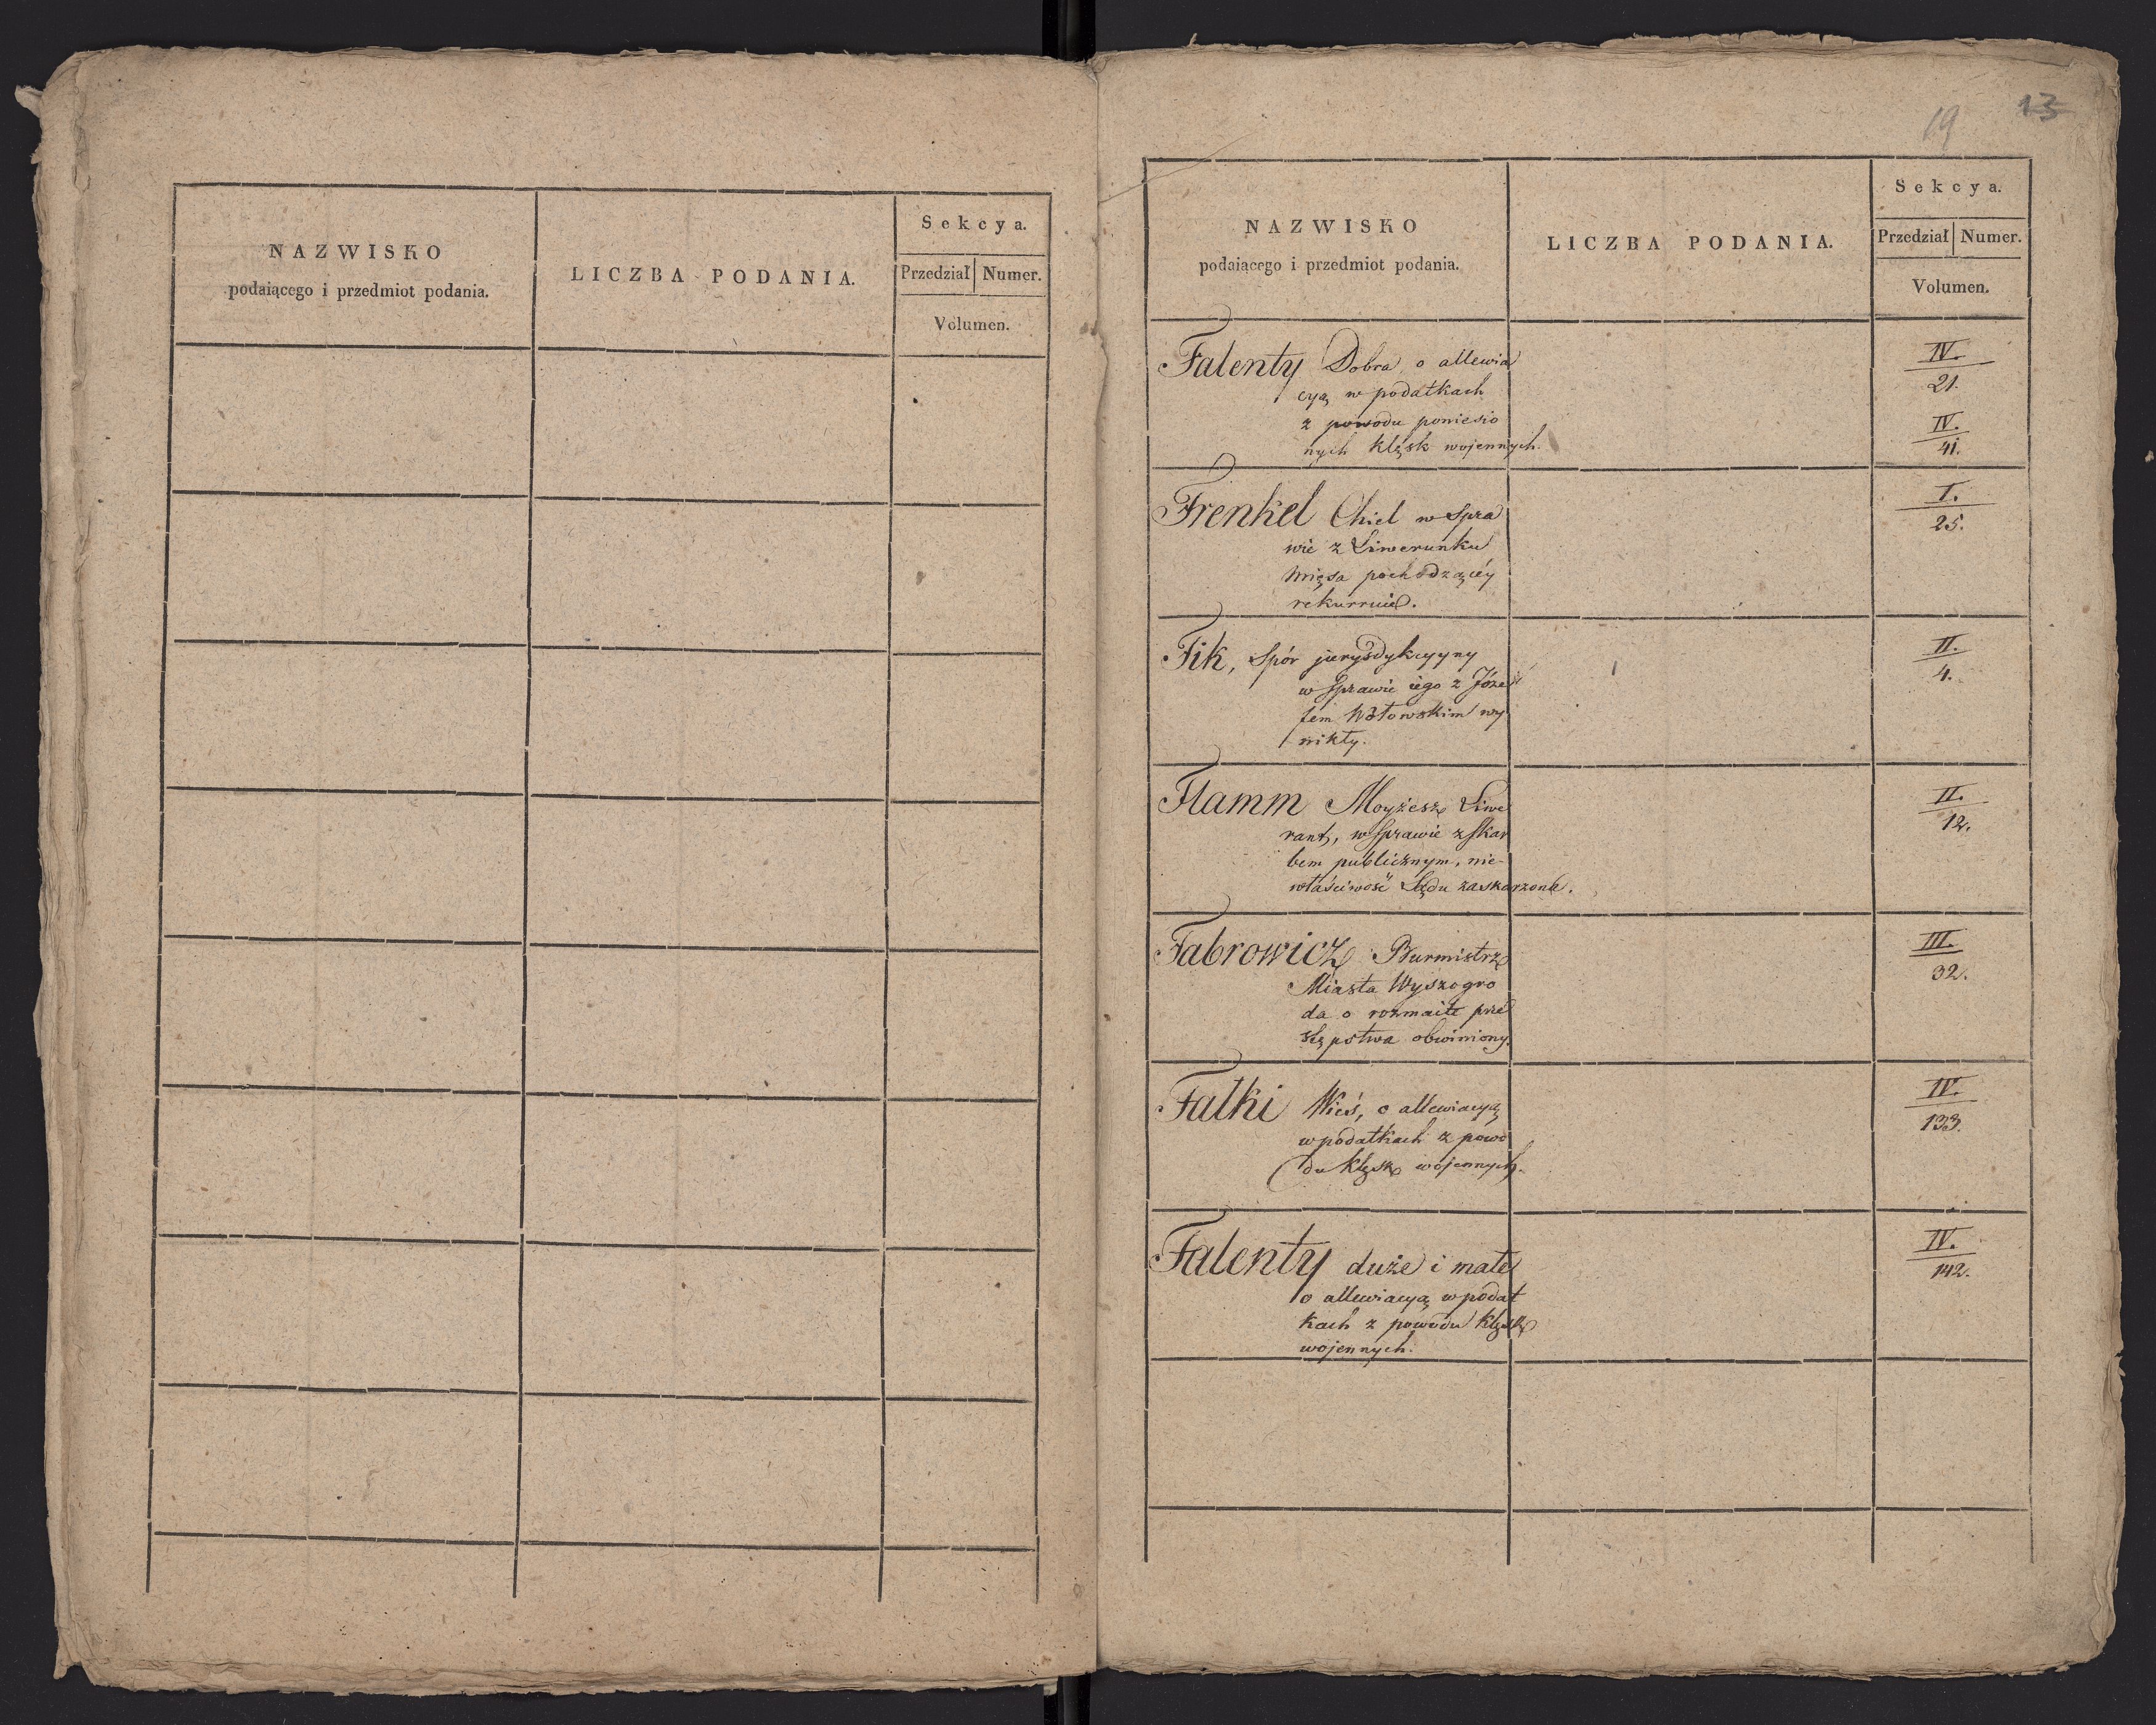 NAZWISKO
podaiącego i przedmiot podania.
LICZBA PODANIA.
Sekcya.
Przedział Numer.
Volumen.
19 13
NAZWISKO
podaiącego i przedmiot podania.
LICZBA PODANIA.
Sekcya.
Przedział Numer.
Volumen.
Falenty Dobra, o allewia
cyą w podatkach
z powodu poniesio
nych klęsk wojennych.
IV.
21.
IV.
41.
Frenkel Chiel w Spra
wie z Liwerunku
mięsa pochodzącéy
rekurruie.
I.
25.
Fik, Spór jurysdykcyyny
w Sprawie iego z Józe
fem Wołowskim wy
nikły.
II.
4.
Flamm Moyżesz Liwe
rant, w Sprawie z Skar
bem publicznym, nie-
właściwość Sądu zaskarżona.
II.
12.
Fabrowicz Burmistrz
Miasta Wyszogro
da o rozmaite prze
stępstwa obwiniony.
III.
32.
Falki Wieś, o allewiacyą
w podatkach z powo
du klęsk wojennych.
IV.
133.
Falenty duże i małe
o allewiacyą w podat
kach z powodu klęsk
wojennych.
IV.
142.